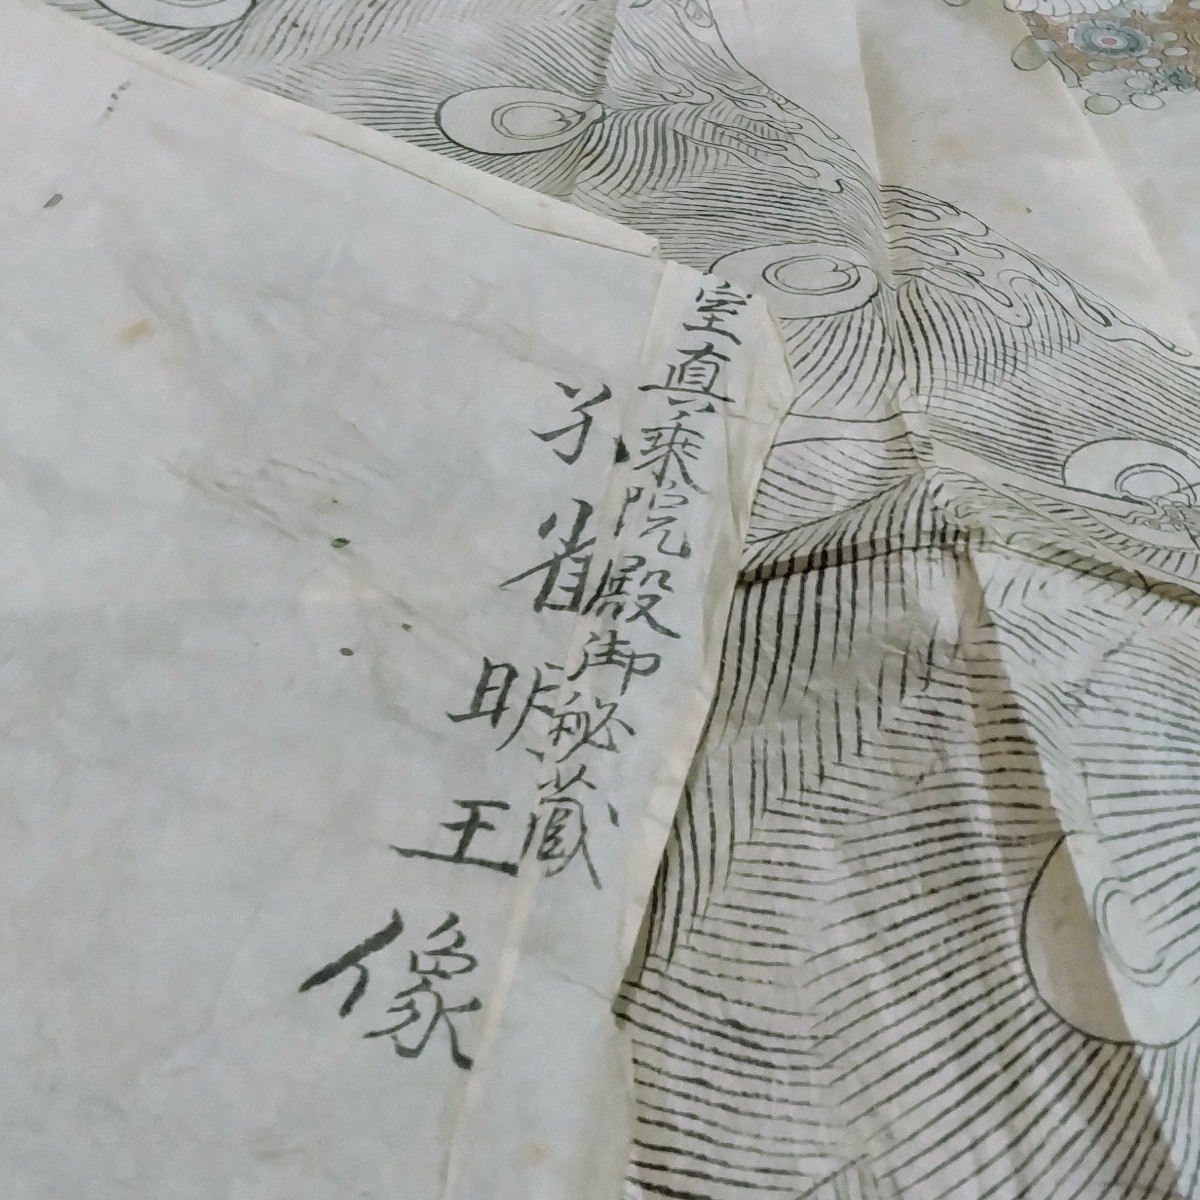 室真乗院殿御秘蔵
孔雀明王像